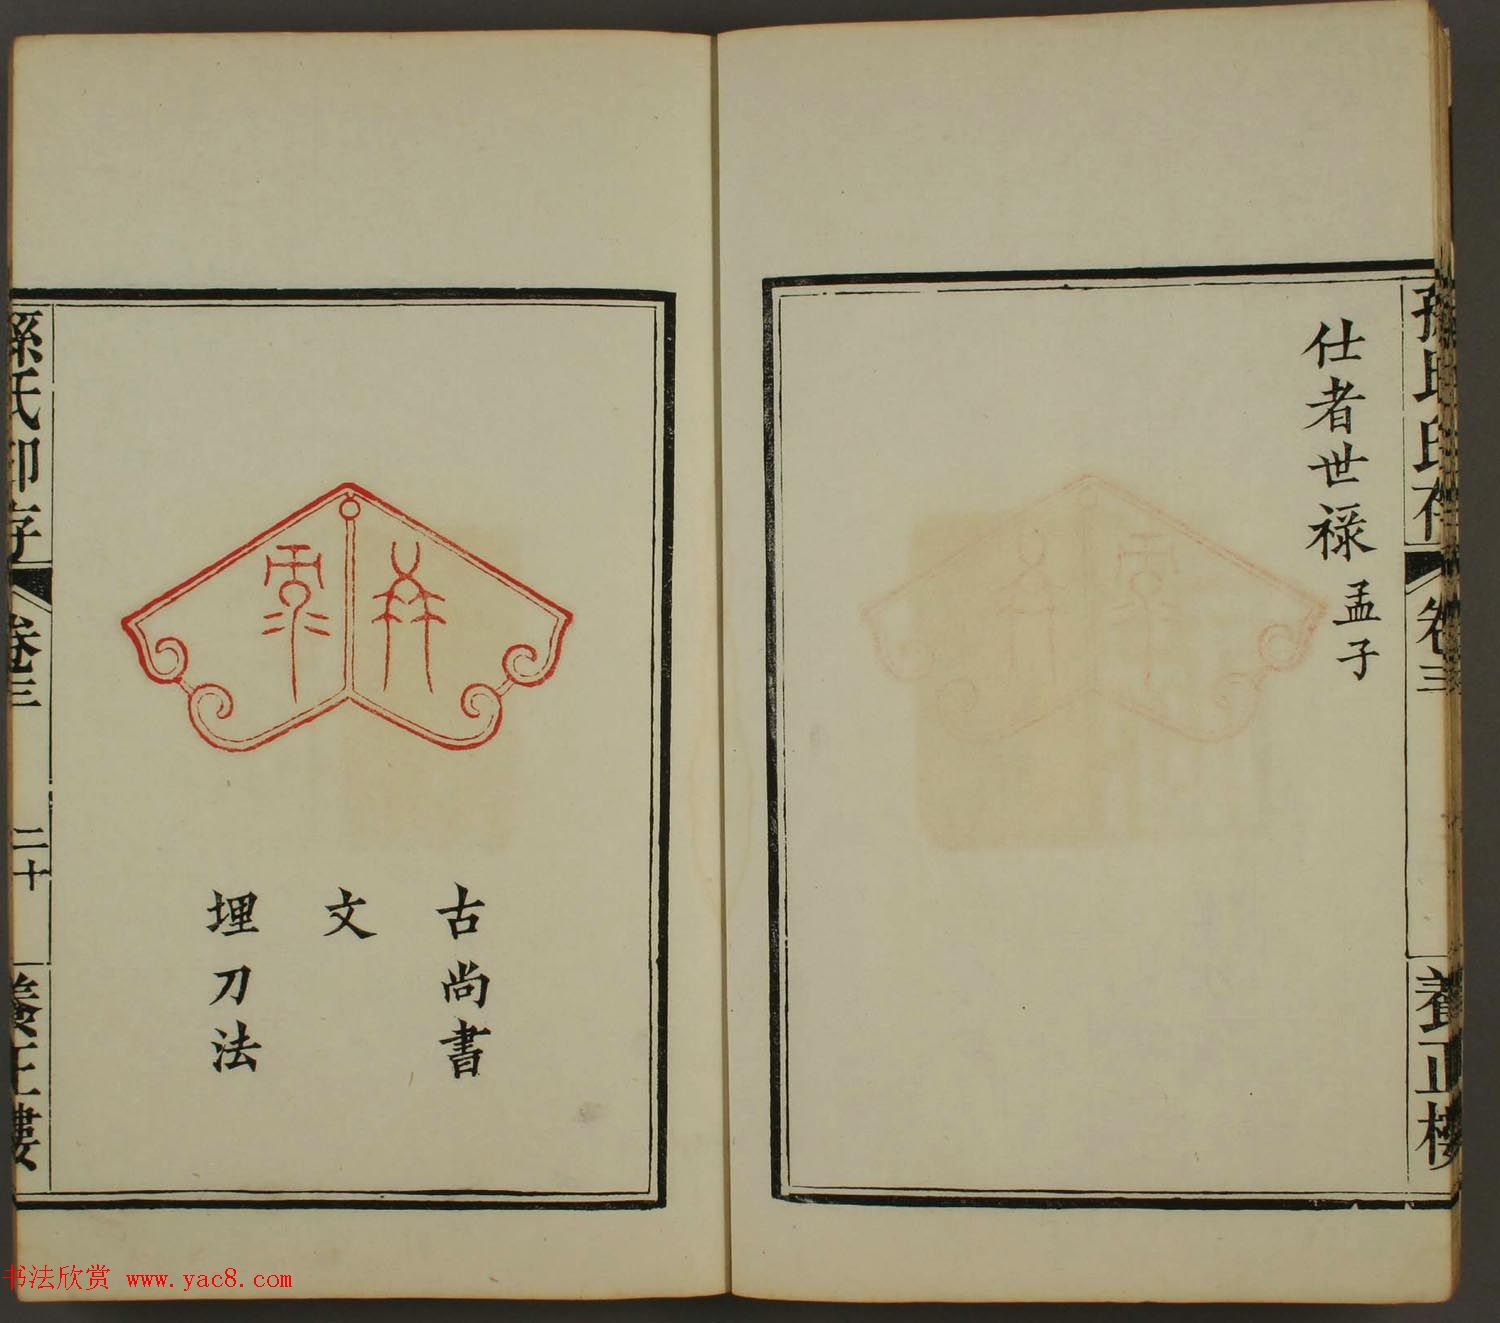 孫氏印存
卷三
養正樓
仕者世祿 孟子
古尚書
文
埋刀法
孫氏印存
卷三
二十
養正樓
书法欣赏 www.yac8.com